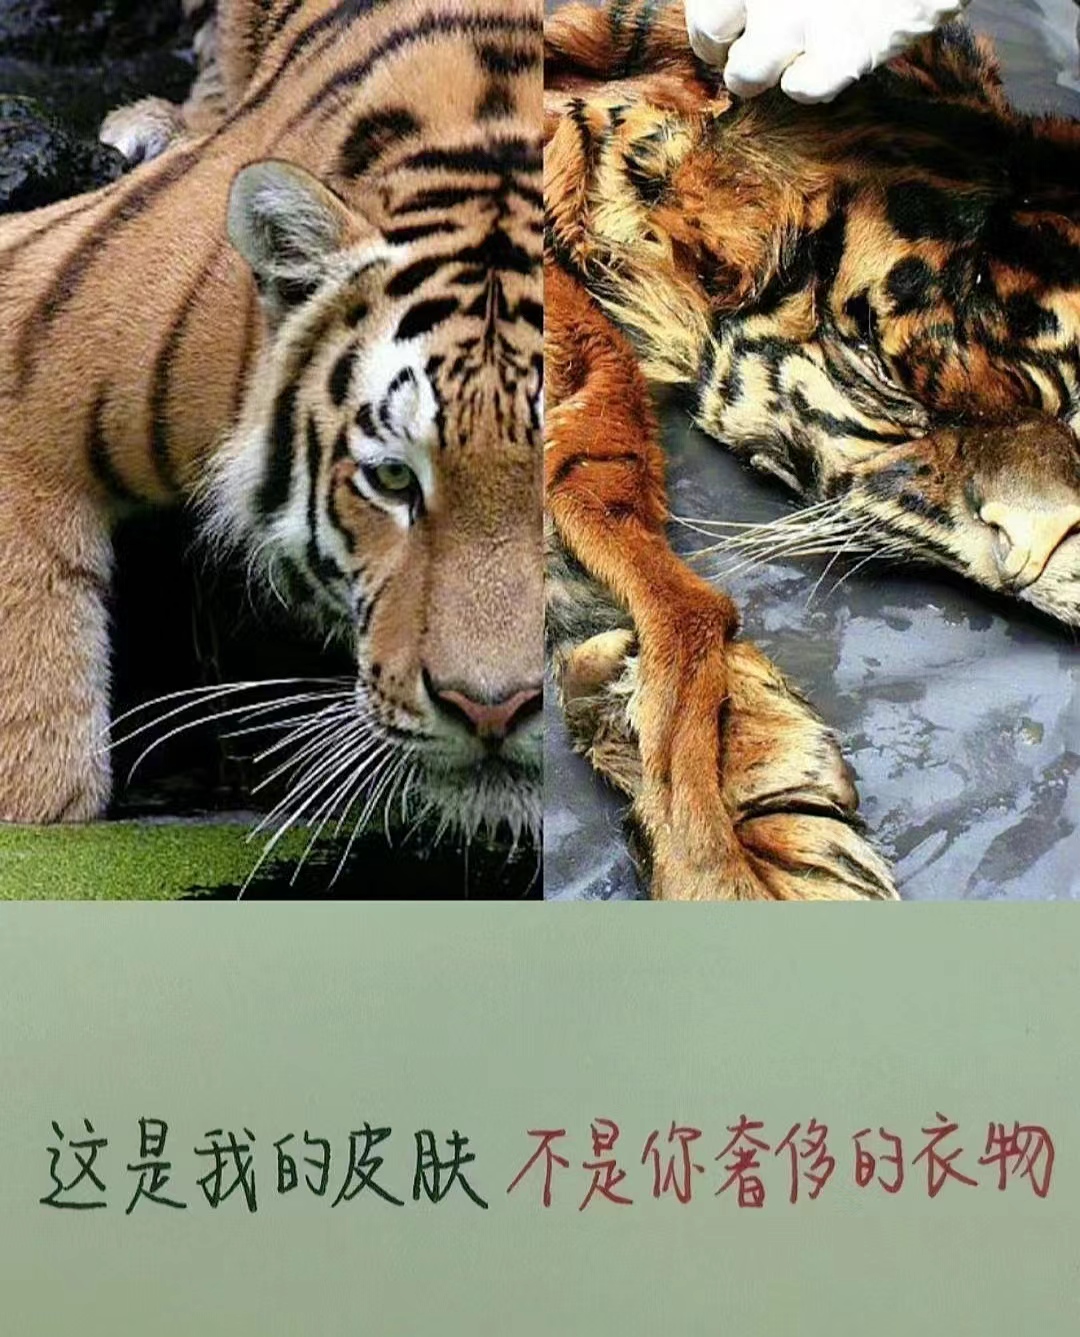 这是我的皮肤 不是你奢侈的衣物